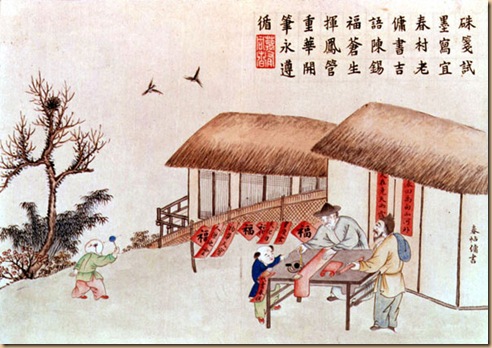 硃箋試
墨寫宜
春村老
傭書吉
語陳錫
福蒼生
揮鳳管
重華開
筆永遵
循
春帖傭書
福
福
福